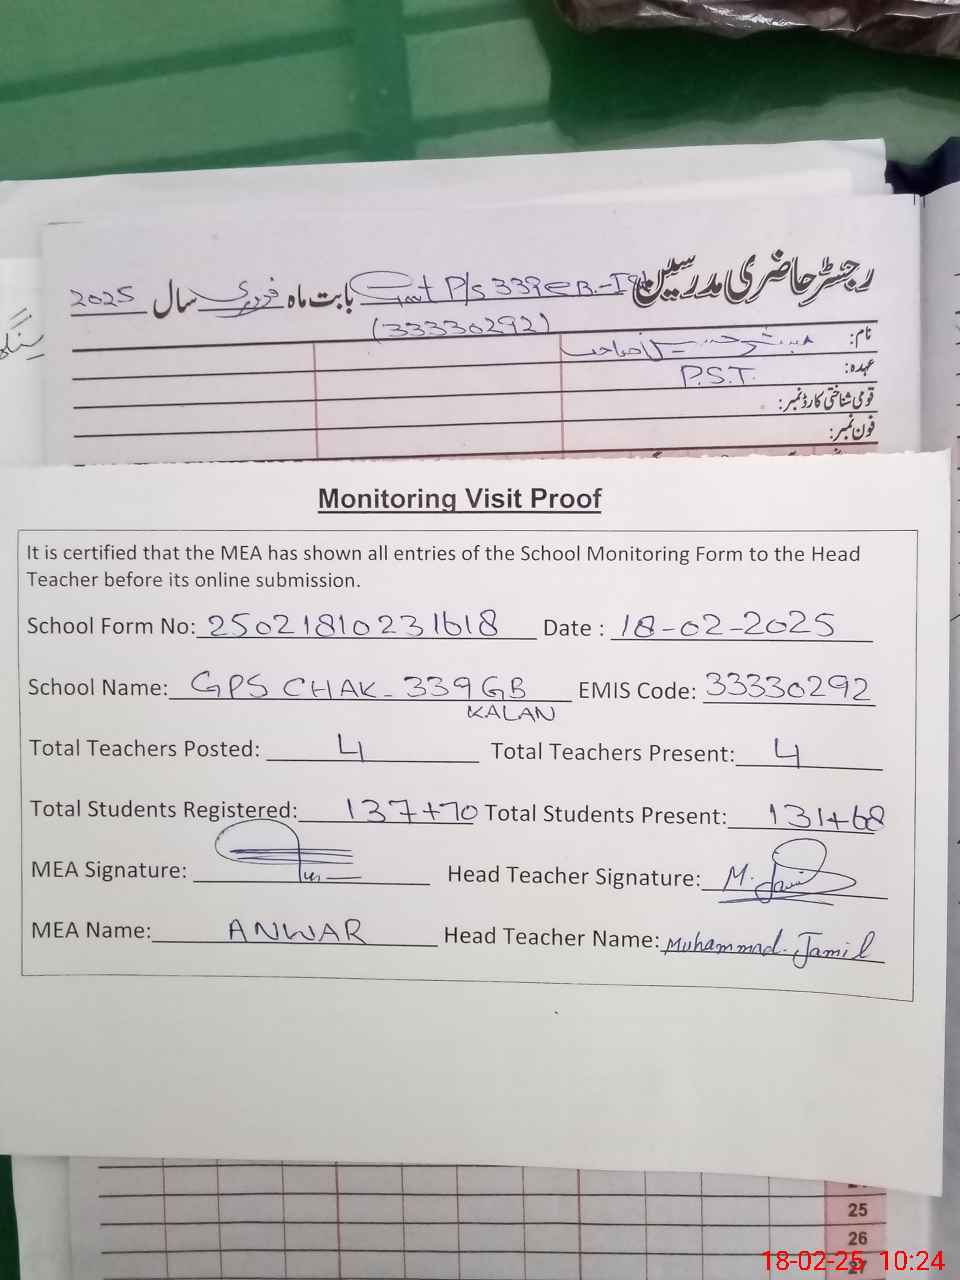 رجسٹر حاضری مدرسین Govt P/S 339 GB-I بابت ماہ فروری سال 2025
(33330292)
نام:
عہدہ: P.S.T.
قومی شناختی کارڈ نمبر:
فون نمبر:
Monitoring Visit Proof
It is certified that the MEA has shown all entries of the School Monitoring Form to the Head
Teacher before its online submission.
School Form No: 25021810231618 Date : 18-02-2025
School Name: GPS CHAK-339GB EMIS Code: 33330292
KALAN
Total Teachers Posted: 4 Total Teachers Present: 4
Total Students Registered: 137+70 Total Students Present: 131+68
MEA Signature: Head Teacher Signature: M. Jamil
MEA Name: ANWAR Head Teacher Name: Muhammad Jamil
25
26
27
18-02-25 10:24